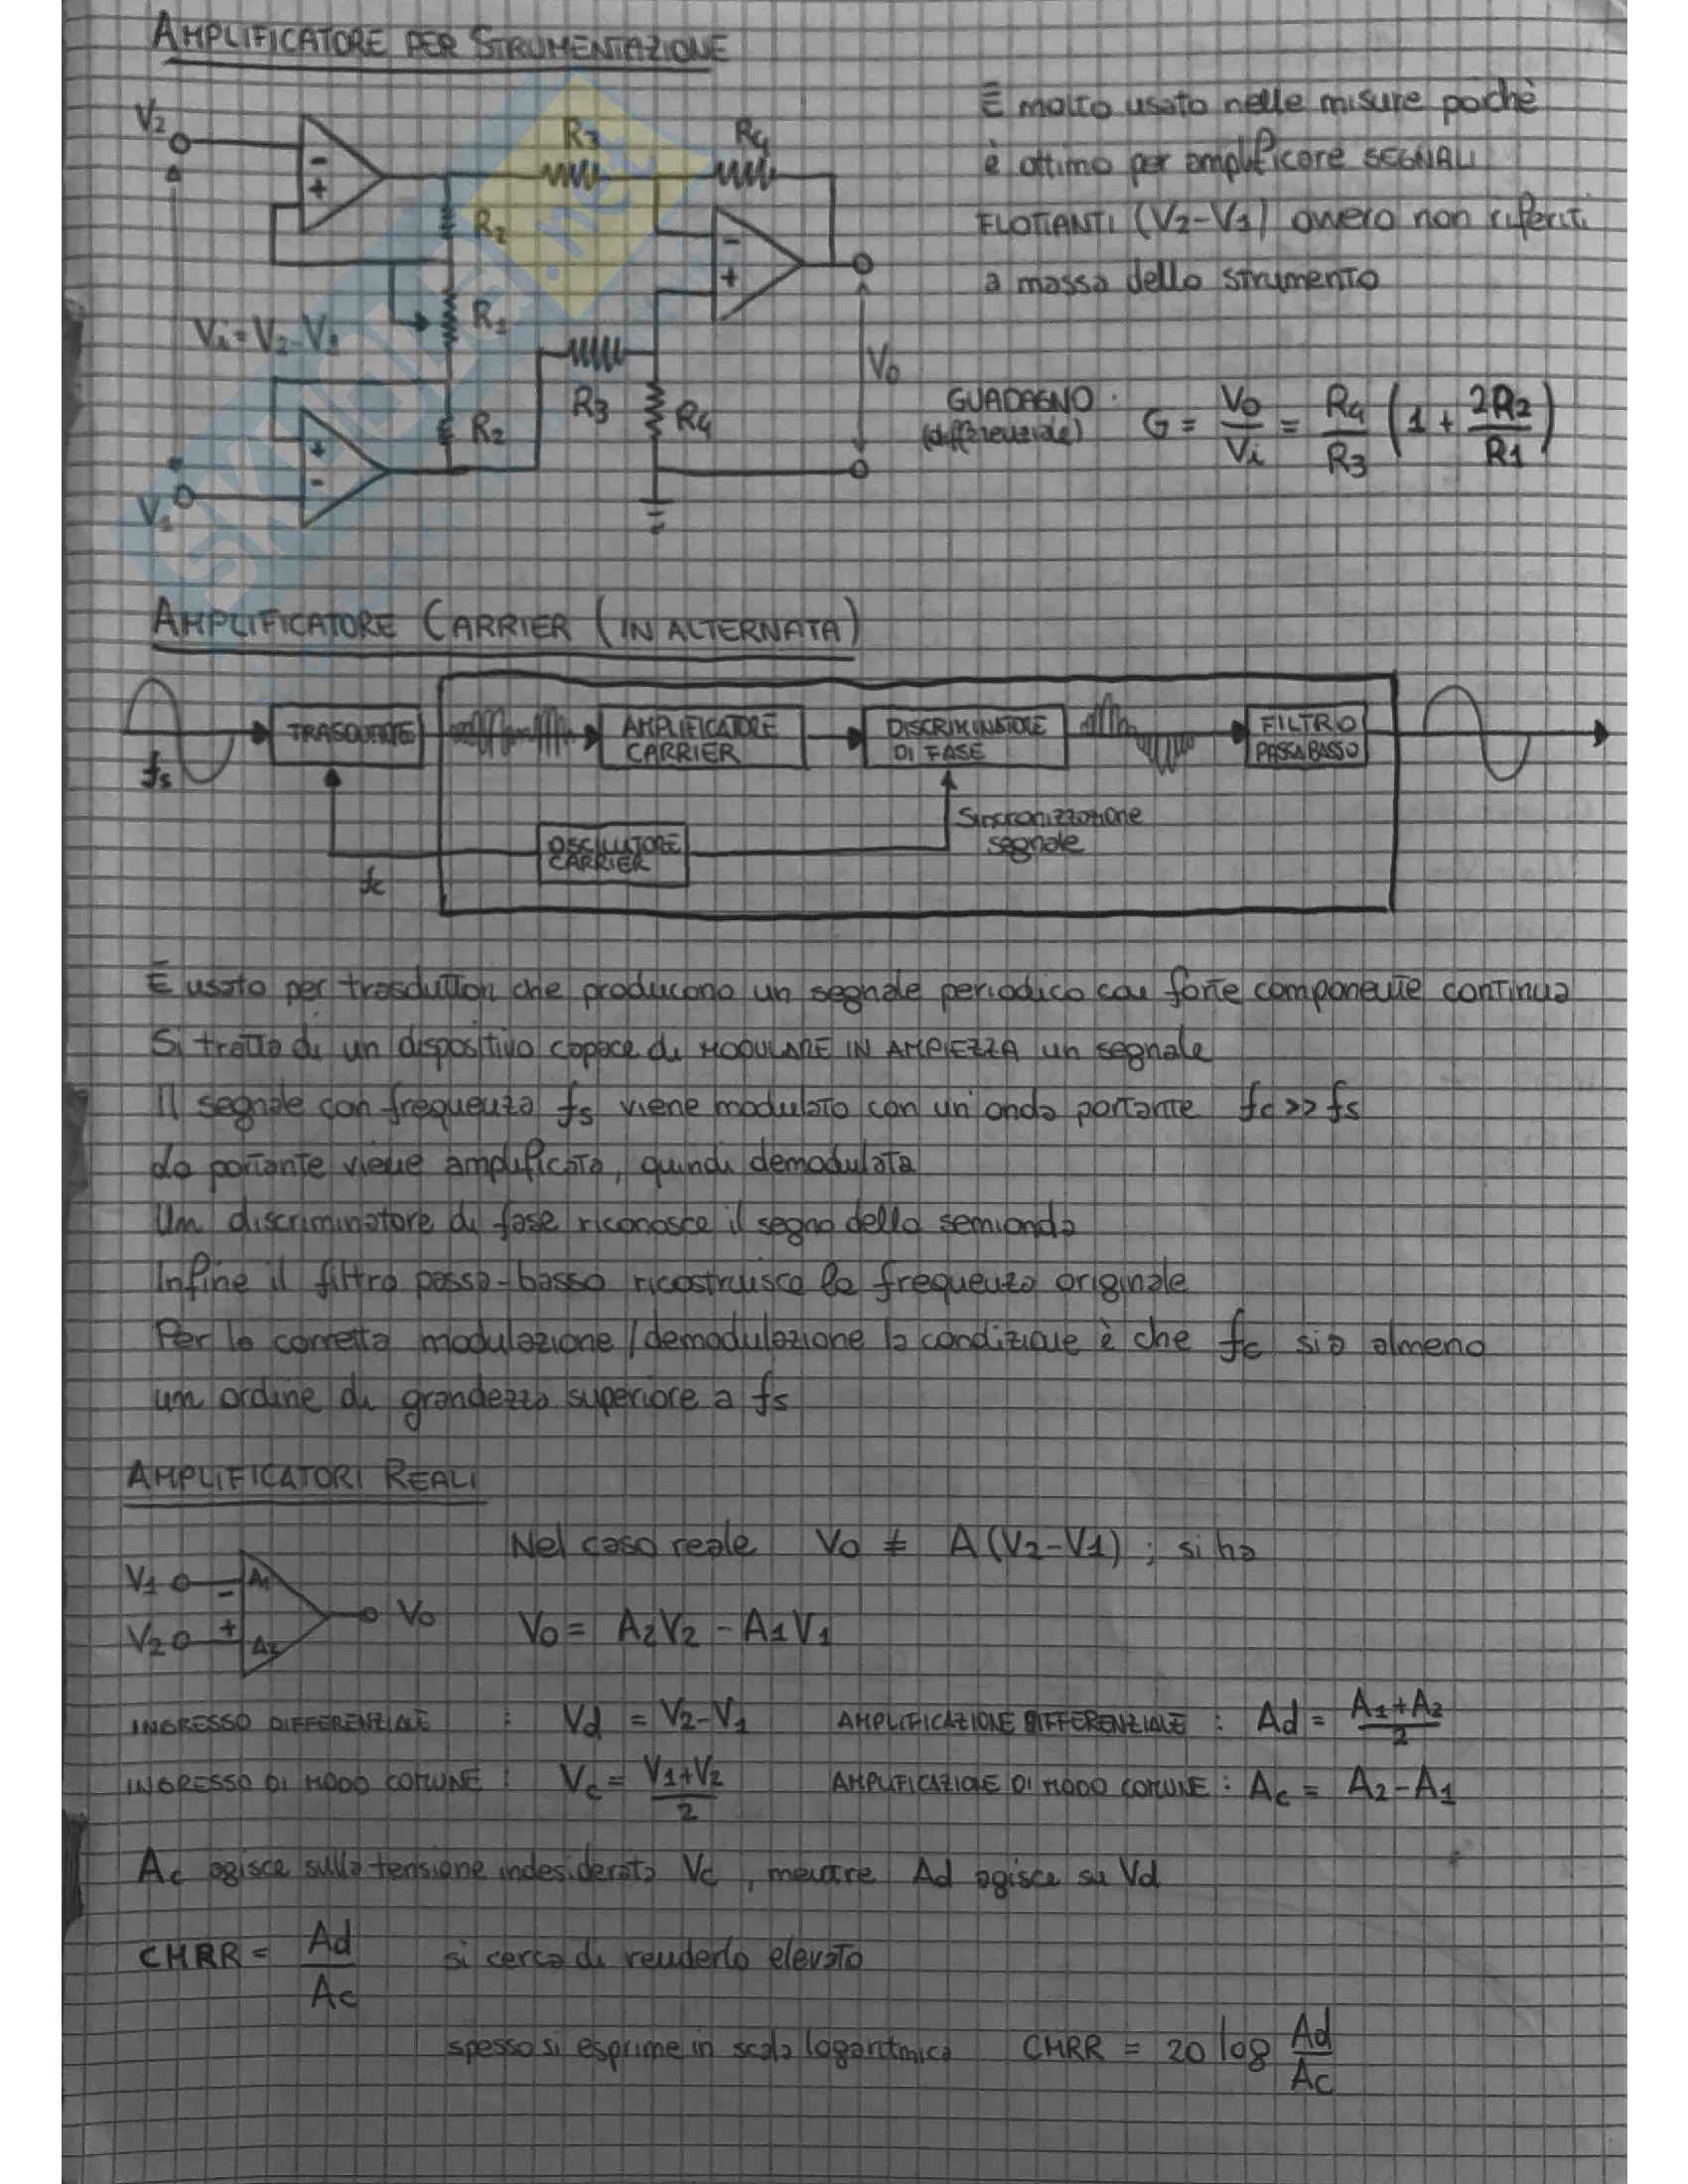 AMPLIFICATORE PER STRUMENTAZIONE
È molto usato nelle misure poichè
è ottimo per amplificare SEGNALI
FLOTTANTI (V2-V1) ovvero non riferiti
a massa dello strumento
V2
R3
R4
R2
R1
Vi=V2-V1
R3
R4
R2
V1
V0
GUADAGNO: (differenziale) G = V0/Vi = R4/R3 (1 + 2R2/R1)
SKUOLA.net
AMPLIFICATORE CARRIER (IN ALTERNATA)
fs
TRASDUTTORE
AMPLIFICATORE
CARRIER
DISCRIMINATORE
DI FASE
FILTRO
PASSABASSO
OSCILLATORE
CARRIER
Sincronizzazione
segnale
fc
È usato per trasduttori che producono un segnale periodico con forte componente continua
Si tratta di un dispositivo capace di MODULARE IN AMPIEZZA un segnale
Il segnale con frequenza fs viene modulato con un'onda portante fc >> fs
La portante viene amplificata, quindi demodulata
Un discriminatore di fase riconosce il segno della semionda
Infine il filtro passa-basso ricostruisce la frequenza originale
Per la corretta modulazione/demodulazione la condizione è che fc sia almeno
un ordine di grandezza superiore a fs
AMPLIFICATORI REALI
Nel caso reale V0 ≠ A(V2-V1) ; si ha
V1
-
A1
V0
V2
+
A2
V0 = A2V2 - A1V1
INGRESSO DIFFERENZIALE : Vd = V2-V1 AMPLIFICAZIONE DIFFERENZIALE : Ad = A1+A2/2
INGRESSO DI MODO COMUNE : Vc = V1+V2/2 AMPLIFICAZIONE DI MODO COMUNE : Ac = A2-A1
Ac agisce sulla tensione indesiderata Vc, mentre Ad agisce su Vd
CMRR = Ad/Ac si cerca di renderlo elevato
spesso si esprime in scala logaritmica CMRR = 20 log Ad/Ac